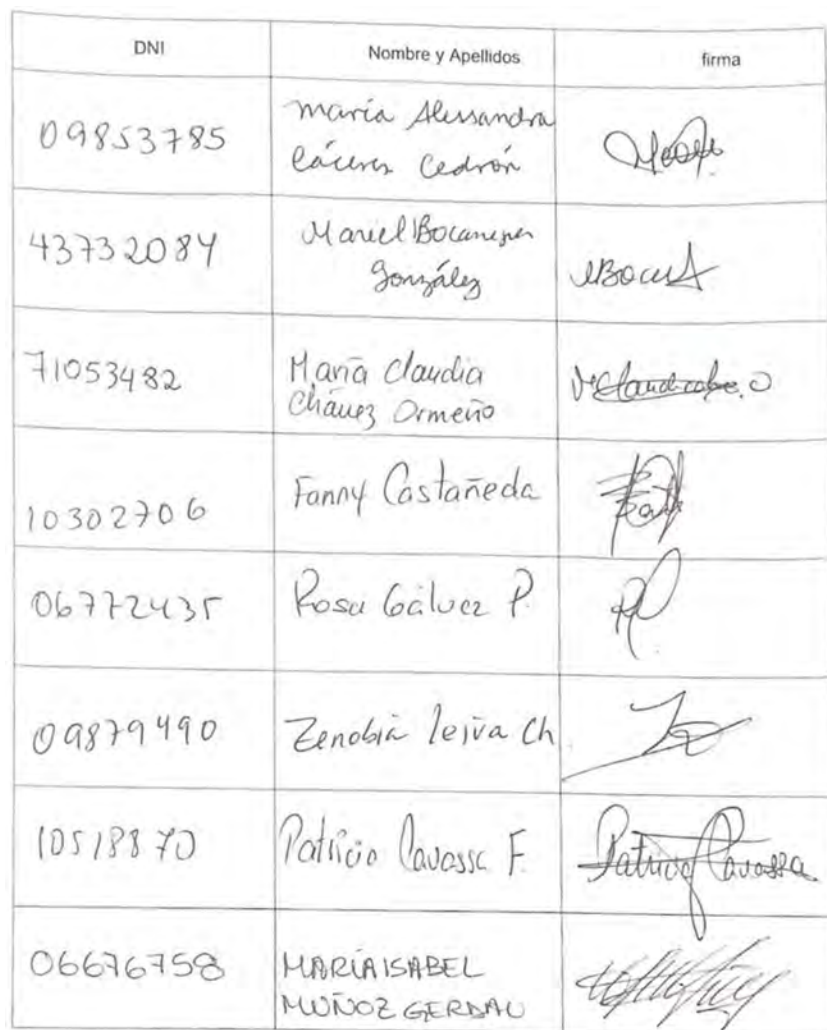 DNI Nombre y Apellidos firma
09853785 María Alessandra
Cáceres Cedrón
43732084 Mariel Bocanegra
González
71053482 María Claudia
Chávez Ormeño
10302706 Fanny Castañeda
06772435 Rosa Gálvez P.
09879490 Zenobia Leiva Ch
10518870 Patricia Cavassa F. Patricia Cavassa
06676758 MARÍA ISABEL
MUÑOZ GERDAU